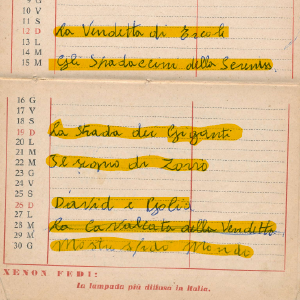 9 V
10 S
11 S
12 D La Vendetta di Ercole
13 L
14 M
15 M Gli Spadaccini della Serenis.
16 G
17 V
18 S
19 D La Strada dei Giganti
20 L
21 M
22 M Il sogno di Zorro
23 G
24 V
25 S
26 D David e Golia
27 L
28 M La Cavalcata della Vendetta
29 M Mostri sfida Mondo
30 G
XENON FEDI:
la lampada più diffusa in Italia.